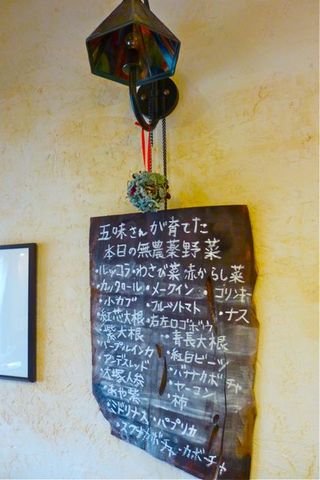 五味さんが育てた
本日の無農薬野菜
・ルッコラ・わさび菜 赤からし菜
・カーリケール・メークイン・ゴリンキー
・小カブ・フルーツトマト・ナス
・紅芯大根・右左ロゴボウ
・紫大根・青長大根
・パープルインカ・紅白ビーツ
・アンデスレッド・バナナカボチャ
大塚人参・ヤーコン
・あや紫・柿
・ミドリナス・パプリカ
・スクナカボチャ・カボーチャ